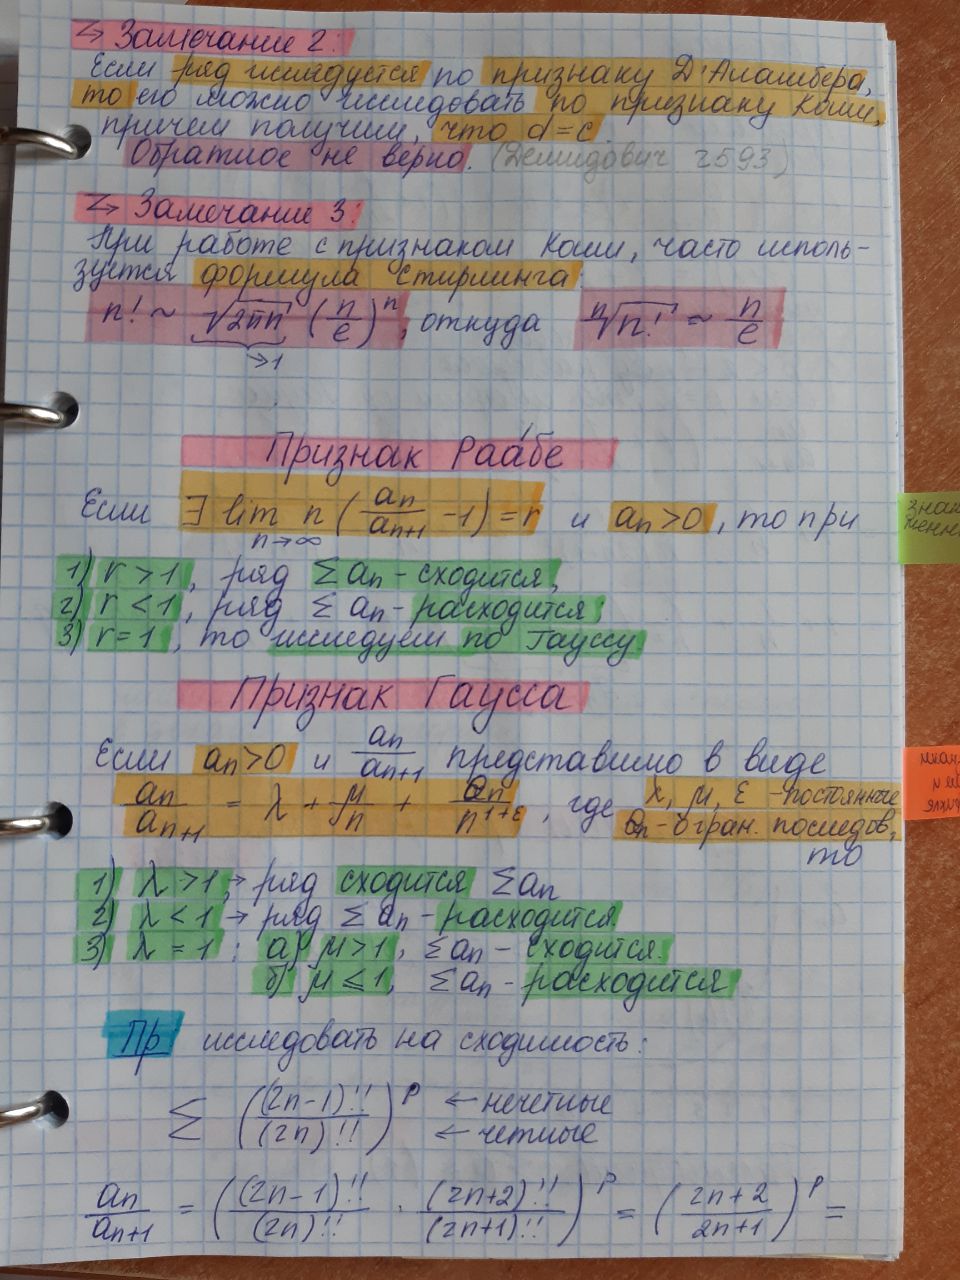 ↳ Замечание 2:
Если ряд исследуется по признаку Д'Аламбера,
то его можно исследовать по признаку Коши,
причем получим, что d=c
Обратное не верно. (Демидович 2593)
↳ Замечание 3:
При работе с признаком Коши, часто исполь-
зуется формула Стирлинга
n! ~ √2πn (n/e)ⁿ, откуда ⁿ√n! ~ n/e
→1
Признак Раа́бе
Если ∃ lim n→∞ n (aₙ/aₙ₊₁ - 1) = r и aₙ>0, то при
1) r > 1, ряд Σaₙ - сходится,
2) r < 1, ряд Σ aₙ - расходится;
3) r = 1, то исследуем по Гауссу.
Признак Гаусса
Если aₙ>0 и aₙ/aₙ₊₁ представимо в виде
aₙ/aₙ₊₁ = λ + μ/n + Θₙ/n¹⁺ᵋ, где λ, μ, ε - постоянные
Θₙ - огран. последов,
то
1) λ > 1, → ряд сходится Σaₙ
2) λ < 1 → ряд Σaₙ - расходится.
3) λ = 1 : а) μ>1, Σaₙ - сходится.
б) μ ≤ 1, Σaₙ - расходится
Пр исследовать на сходимость:
Σ ((2n-1)!!/(2n)!!)ᵖ ← нечетные
← четные
aₙ/aₙ₊₁ = ((2n-1)!!/(2n)!! · (2n+2)!!/(2n+1)!!)ᵖ = (2n+2/2n+1)ᵖ =